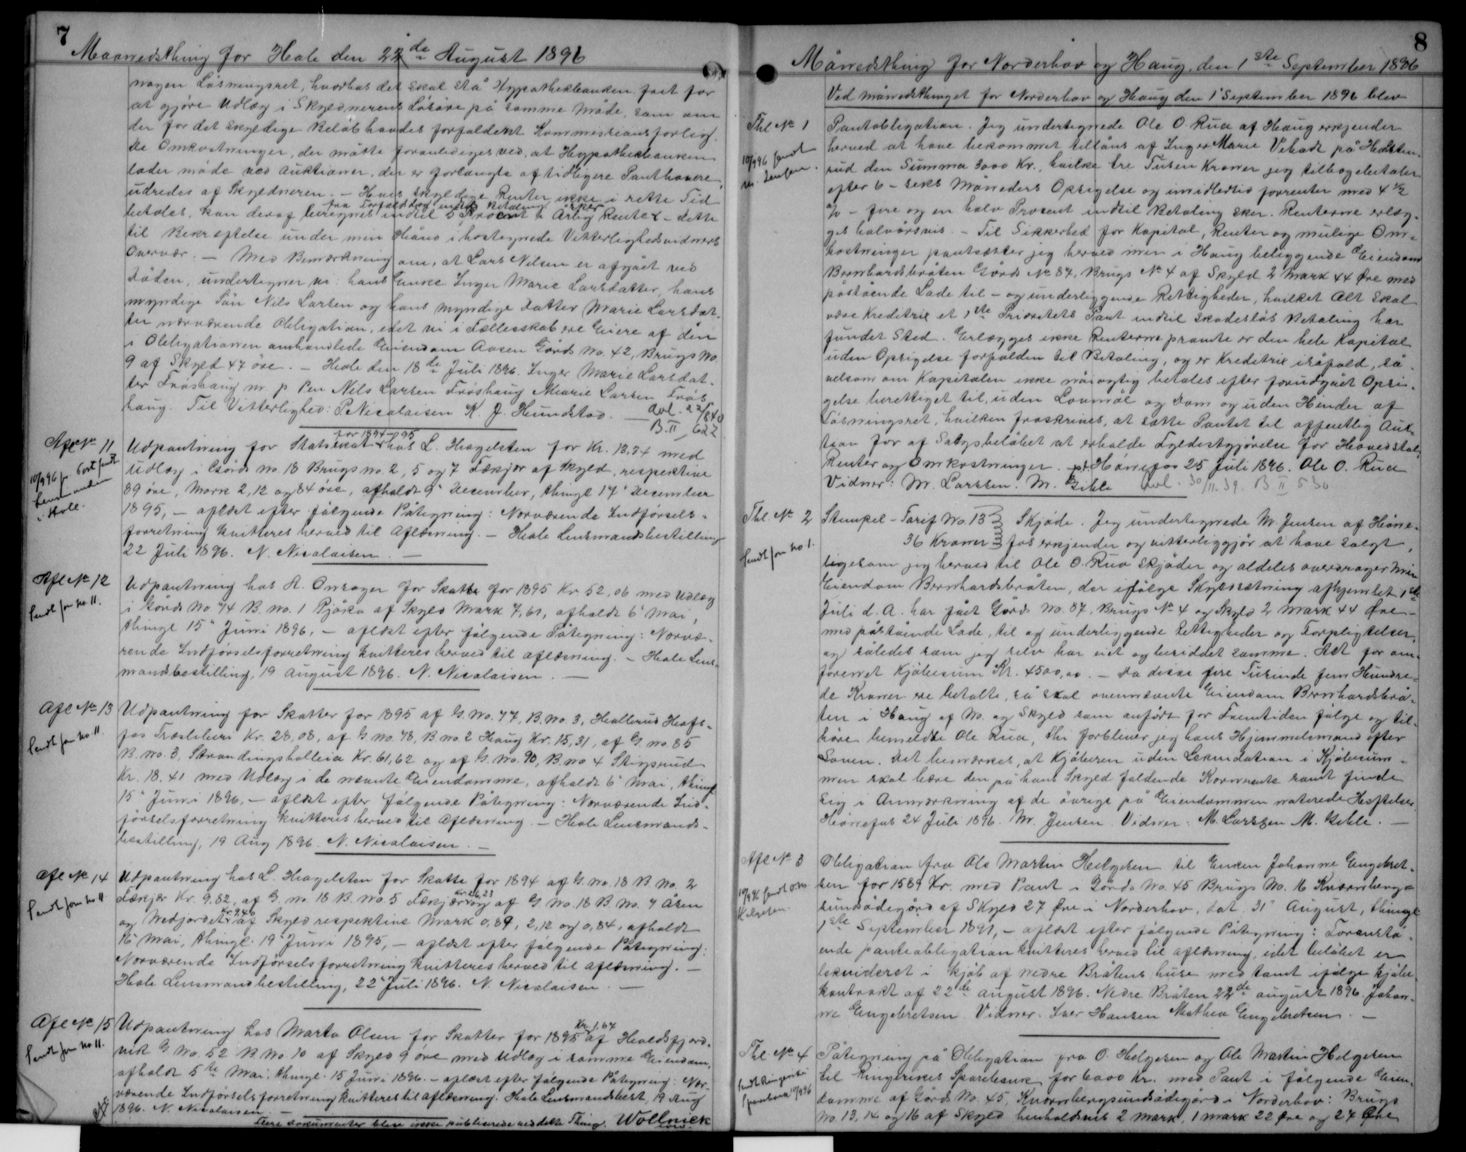 7
Maanedsthing for Hole den 22de August 1896
nogen Løsningsret, hvorhos det skal stå Hypothekbanken frit for
at gjøre Udlæg i Skyldnerens Løsøre på samme Måde, som om
der for det skyldige Beløb havdes forfaldent Kommissionsforlig.
De Omkostninger, der måtte foranlediges ved, at Hypothekbanken
lader møde ved Auktioner, der er forlangte af tidligere Panthavere,
udredes af Skyldneren. – Hvis skyldige Renter ikke i rette Tid
betales, kan deraf beregnes fra Forfaldsdag indtil Betaling sker indtil 5 Procent årlig Rente – dette
til Bekræftelse under min Hånd i hostegnede Vitterlighedsvidners
Overvær. – Med Bemærkning om, at Lars Nilsen er afgået ved
Døden, undertegner vi: hans Enke Inger Marie Larsdatter, hans
myndige Søn Nils Larsen og hans myndige Datter Marie Larsdat-
ter nærværende Obligation, idet vi i Fællesskab ere Eiere af den
i Obligationen omhandlede Eiendom Aasen Gårds No. 42, Brugs No.
9 af Skyld 47 øre. – Hole den 18de Juli 1896. Inger Marie Larsdat-
ter Frøshaug m. p. Pen Nils Larsen Frøshaug Marie Larsen Frøs-
haug. Til Vitterlighed: P. Nicolaisen K. J. Hundstad.
B. II / 622
Afl No 11
Udpantning for Statsskat for 1894–95 hos L. Hagelsten for Kr. 13.74 med
Udlæg i Gårds no 18 Brugs no. 2, 5 og 7 Færkjør af Skyld, respektive
89 øre, Mark 2,12 og 84 øre, afholdt 9 December, thingl 17 December
1895, – aflæst efter følgende Påtegning: Nærværende Indførsels-
forretning kvitteres herved til Aflæsning. – Hole Lensmandsbestilling
22 Juli 1896. N. Nicolaisen. –
Afl No 12
Sendt som no 11.
Udpantning hos A. Onsager for Skatter for 1895 Kr 52,06 med Udlæg
i Gårds No 94 B. no. 1 Pjåka af Skyld Mark 7,61, afholdt 6 Mai,
thingl 15 Juni 1896, – aflæst efter følgende Påtegning: Nærvæ-
rende Indførselsforretning kvitteres herved til aflæsning. – Hole Lens-
mandsbestilling, 19 August 1896. N. Nicolaisen. –
Afl No 13
Sendt som no 11
Udpantning for Skatter for 1895 af G. No. 77, B. no. 3, Hollerud Hofs-
fos Træsliberi Kr. 28,08, af G no. 78, B no 2 Haug Kr. 15,31, af G. no. 85
B. no. 3, Strandingsholleia Kr. 61,62 og af G. No. 90, B. no 4 Stigsrud
Kr. 18,41 med Udlæg i de nævnte Eiendomme, afholdt 6 Mai, thingl
15 Juni 1896, – aflæst efter følgende Påtegning: Nærværende Ind-
førselsforretning kvitteres herved til Aflæsning. – Hole Lensmands-
bestilling, 19 Aug 1896. N. Nicolaisen. –
Afl No 14
Sendt som no 11
Udpantning hos L. Hagelsten for Skatte for 1894 af G. no. 18 B no. 2
Færkjør Kr. 9,82, af G. no. 18 B. no 5 Færkjør og af G No. 18 B No. 7 Åsen
og Nedjordet af Skyld respektive Mark 0,89, 2,12 og 0,84, afholdt
16 Mai, thingl. 19 Juni 1895, – aflæst efter følgende Påtegning:
Nærværende Indførselsforretning kvitteres herved til aflæsning. –
Hole Lensmandsbestilling, 22 Juli 1896. N. Nicolaisen. –
Afl No 15
Sendt som no 11.
Udpantning hos Marta Olsen for Skatter for 1895 Kr. 1,67 af Holdsfjord-
vik G No. 52 B No 10 af Skyld 9 øre med Udlæg i samme Eiendom,
afholdt 5te Mai, thingl. 15 Juni 1896. – aflæst efter følgende Påtegning: Nær-
værende Indførselsforretning kvitteres til aflæsning. Hole Lensmandsbest. 19 Aug
1896. N. Nicolaisen –
Flere Dokumenter blev ikke publicerede ved dette Thing. Wollnick
8
Månedsthing for Norderhov og Haug, den 1ste September 1896
Ved månedsthinget for Norderhov og Haug den 1 September 1896 blev
Thl No 1
Pantobligation. Jeg undertegnede Ole O. Rua af Haug erkjender
herved at have bekommet tillåns af Inger Marie Veholt på Hadsten-
rud den Summa 3000 Kr., hvilke tre Tusen Kroner jeg tilbagebetaler
efter 6 – seks Måneders Opsigelse og imidlertid forrenter med 4 ½
% – fire og en halv Procent indtil Betaling sker. Renterne erlæg-
ges halvårsvis. – Til Sikkerhed for Kapital, Renter og mulige Om-
kostninger pantsætter jeg herved min i Haug beliggende Eiendom
Bernhardsbråten Gårds No 87, Brugs No 4 af Skyld 2 Mark 44 Øre med
påstående Lade til – og underliggende Rettigheder, hvilket Alt skal
være Kreditrix et 1ste Prioritets Pant indtil skadesløs Betaling har
fundet Sted. Erlægges ikke Renterne promte er den hele Kapital
uden Opsigelse forfalden til Betaling, og er Kreditrix isåfald, så-
velsom om Kapitalen ikke nøiagtig betales efter foreudgået Opsi-
gelse berettiget til, uden Lovmål og Dom og uden Hinder af
Løsningsret, hvilken fraskrives, at sætte Pantet til offentlig Auk-
tion for af Salgsbeløbet at erholde Fyldestgjørelse for Hovedstol,
Renter og Omkostninger. – Hønefos 25 Juli 1896. Ole O. Rua
Vidner: M. Larssen. M. Gihle Avl. 30/11.39. B II 530
Thl No 2
Sendt som no 1.
Stempel-Tarif No. 13 Skjøde. Jeg undertegnede M. Jensen af Høne-
36 Kroner fos erkjender og vitterliggjør at have solgt,
ligesom jeg herved til Ole O. Rua skjøder og aldeles overdrager min
Eiendom Bernhardsbråten, der ifølge Skyldsætning afhjemlet 1ste
Juli d. A. har fået Gårds No. 87, Brugs No 4 og Skyld 2 Mark 44 Øre –
med påstående Lade, til og underliggende Rettigheder og Forpligtelser,
og således som jeg selv har eiet og besiddet samme. Alt for om-
forenet Kjøbesum Kr. 4500,00. – Da disse fire Tusende fem Hundre-
de Kroner ere betalte, så skal ovennævnte Eiendom Bernhardsbrå-
ten i Haug af No. og Skyld som anført for Fremtiden følge og til-
høre bemeldte Ole Rua, thi forbliver jeg hans Hjemmelsmand efter
Loven. Det bemærkes, at Kjøberen uden Liquidation i Kjøbesum-
men skal bære den på hans Skyld faldende Kornrente samt finde
sig i Anmærkning af de øvrige på Eiendommen noterede Heftelser.
Hønefos 24 Juli 1896. M. Jensen. Vidner: M. Larssen M. Gihle. –
Afl No 3
Obligation fra Ole Martin Helgesen til Enken Johanne Engebret-
sen for 1589 Kr. med Pant i Gårds No. 45 Brugs No. 16 Kværnbergs-
sundødegård af Skyld 27 Øre i Norderhov, dat. 31 August, thingl.
1ste September 1891, – aflæst efter følgende Påtegning: Foranstå-
ende panteobligation kvitteres herved til aflæsning, idet beløbet er
likvideret i kjøb af nedre Bråtens huse med tomt ifølge kjøbe-
kontrakt af 22de august 1896. Nedre Bråten 22de august 1896. Johan-
ne Engebretsen. Vidner: Iver Hansen Mathea Engebretsen. –
Thl No 4
Påtegning på Obligation fra O. Helgesen og Ole Martin Helgesen
til Ringerikes Sparebank for 6000 Kr. med Pant i følgende Eien-
domme af Gårds No. 45, Kværnbergsundødegård i Norderhov: Brugs
No. 13, 14 og 16 af Skyld henholdsvis 2 Mark, 1 mark 22 Øre og 27 Øre